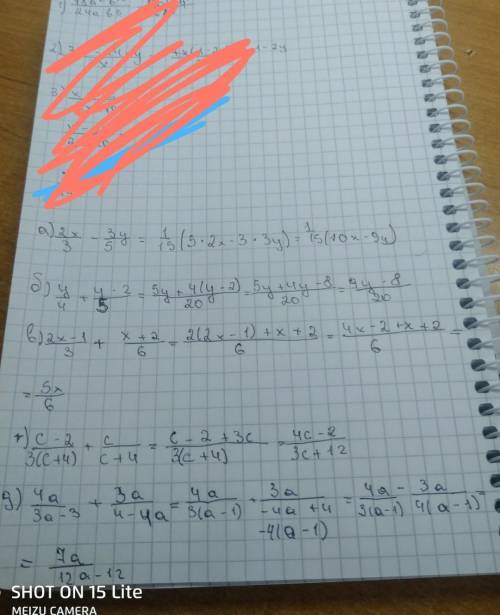 1)
24a
2)
3)
а) 2x/3 - 3y/5 = 1/15 (5·2x - 3·3y) = 1/15 (10x - 9y)
б) y/4 + y-2/5 = 5y+4(y-2)/20 = 5y+4y-8/20 = 9y-8/20
в) 2x-1/3 + x+2/6 = 2(2x-1)+x+2/6 = 4x-2+x+2/6 =
= 5x/6
г) c-2/3(c+4) + c/c+4 = c-2+3c/3(c+4) = 4c-2/3c+12
д) 4a/3a-3 + 3a/4-4a = 4a/3(a-1) + 3a/-4a+4 = 4a/3(a-1) - 3a/4(a-1) =
-4(a-1)
= 7a/12a-12
SHOT ON 15 Lite
MEIZU CAMERA